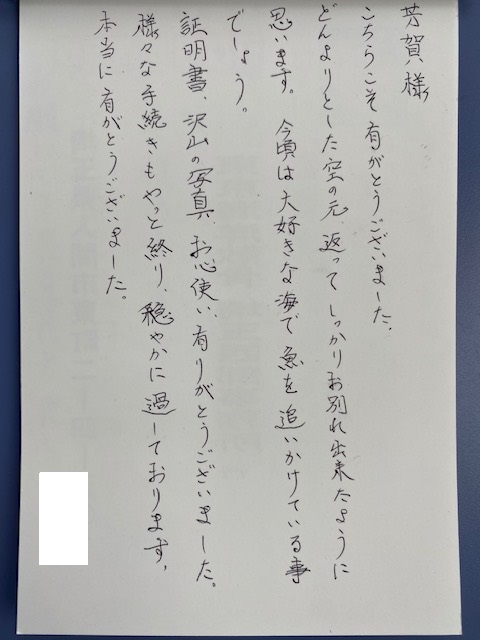 芳賀様
こちらこそ有がとうございました。
どんよりとした空の元、返ってしっかりお別れ出来たように
思います。今頃は大好きな海で魚を追いかけている事
でしょう。
証明書、沢山の写真、お心使い、有りがとうございました。
様々な手続きもやっと終り、穏やかに過しております。
本当に有がとうございました。